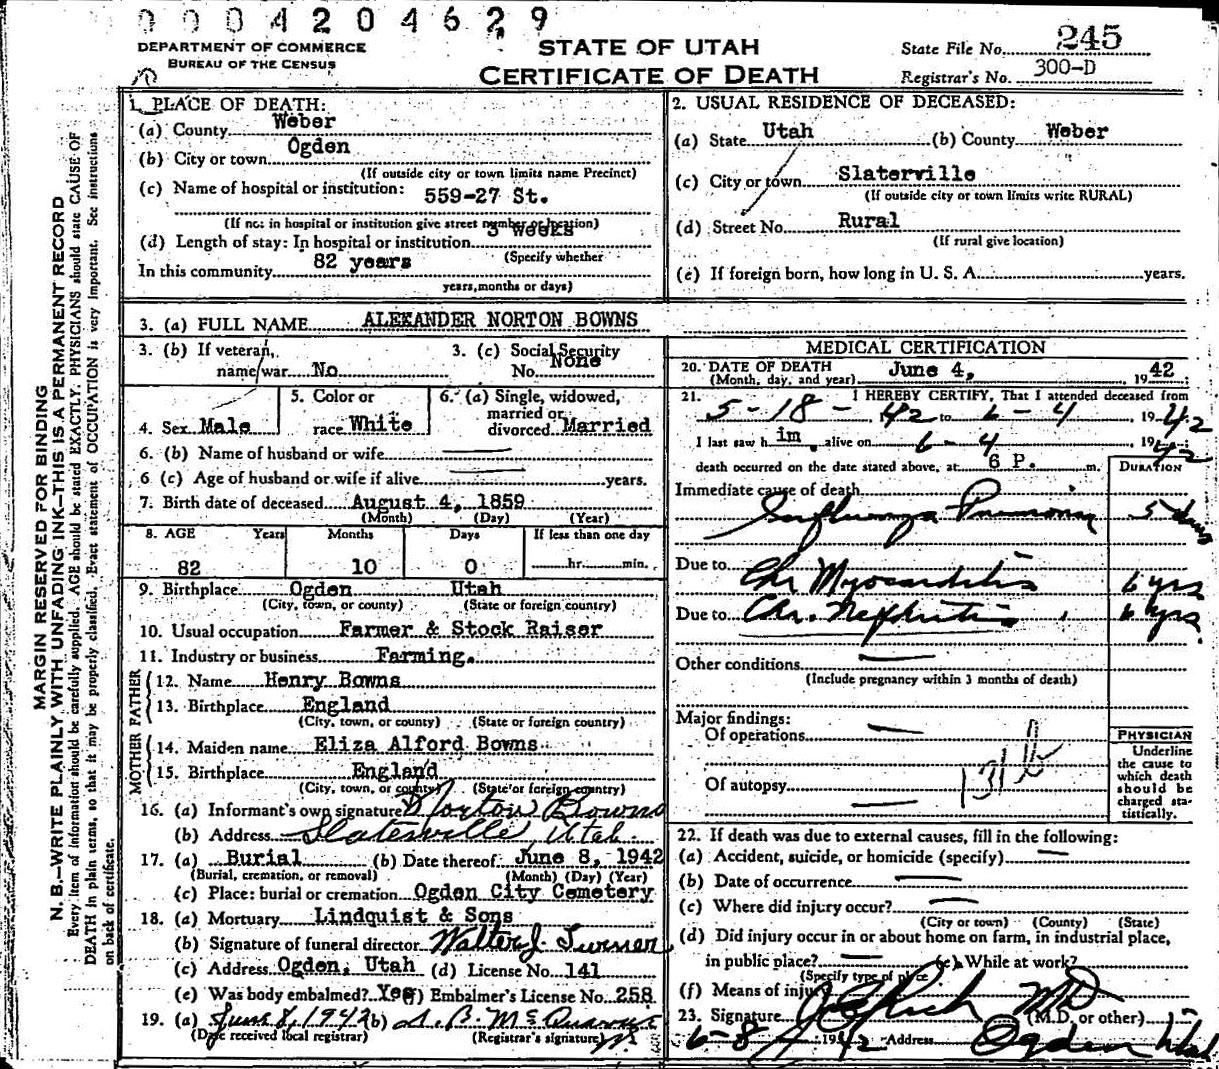 0004204629
DEPARTMENT OF COMMERCE
BUREAU OF THE CENSUS
STATE OF UTAH
CERTIFICATE OF DEATH
State File No. 245
Registrar's No. 300-D
MARGIN RESERVED FOR BINDING
N. B.—WRITE PLAINLY WITH UNFADING INK—THIS IS A PERMANENT RECORD
Every item of information should be carefully supplied. AGE should be stated EXACTLY. PHYSICIANS should state CAUSE OF
DEATH in plain terms, so that it may be properly classified. Exact statement of OCCUPATION is very important. See instructions
on back of certificate.
1. PLACE OF DEATH:
(a) County Weber
(b) City or town Ogden
(If outside city or town limits name Precinct)
(c) Name of hospital or institution: 559-27 St.
(If not in hospital or institution give street number or location)
(d) Length of stay: In hospital or institution 3 weeks
(Specify whether
In this community 82 years
years, months or days)
2. USUAL RESIDENCE OF DECEASED:
(a) State Utah (b) County Weber
(c) City or town Slaterville
(If outside city or town limits write RURAL)
(d) Street No. Rural
(If rural give location)
(e) If foreign born, how long in U. S. A. years.
3. (a) FULL NAME ALEXANDER NORTON BOWNS
3. (b) If veteran, name war No
3. (c) Social Security No. None
4. Sex Male
5. Color or race White
6. (a) Single, widowed, married or divorced Married
6. (b) Name of husband or wife
6 (c) Age of husband or wife if alive years.
7. Birth date of deceased August 4, 1859
(Month) (Day) (Year)
8. AGE Years Months Days If less than one day
82 10 0 hr. min.
9. Birthplace Ogden Utah
(City, town, or county) (State or foreign country)
10. Usual occupation Farmer & Stock Raiser
11. Industry or business Farming.
FATHER
12. Name Henry Bowns
13. Birthplace England
(City, town, or county) (State or foreign country)
MOTHER
14. Maiden name Eliza Alford Bowns
15. Birthplace England
(City, town, or county) (State or foreign country)
16. (a) Informant's own signature Norton Bowns
(b) Address Slaterville, Utah.
17. (a) Burial (b) Date thereof June 8, 1942
(Burial, cremation, or removal) (Month) (Day) (Year)
(c) Place: burial or cremation Ogden City Cemetery
18. (a) Mortuary Lindquist & Sons
(b) Signature of funeral director Walter J. Turner
(c) Address Ogden, Utah (d) License No. 141
(e) Was body embalmed? Yes (f) Embalmer's License No. 258
19. (a) June 8, 1942 (b)
(Date received local registrar) (Registrar's signature)
MEDICAL CERTIFICATION
20. DATE OF DEATH June 4, 1942
(Month, day, and year)
21. I HEREBY CERTIFY, That I attended deceased from
5-18-42 to 6-4 1942
I last saw him alive on 6-4, 1942
death occurred on the date stated above, at 6 P. m.
DURATION
Immediate cause of death
Influenza Pneumonia 5 days
Due to Chr Myocarditis 6 yrs
Due to Chr. Nephritis, 6 yrs.
Other conditions
(Include pregnancy within 3 months of death)
Major findings:
Of operations
131b
Of autopsy
PHYSICIAN
Underline
the cause to
which death
should be
charged sta-
tistically.
22. If death was due to external causes, fill in the following:
(a) Accident, suicide, or homicide (specify)
(b) Date of occurrence
(c) Where did injury occur?
(City or town) (County) (State)
(d) Did injury occur in or about home on farm, in industrial place,
in public place? (e) While at work?
(Specify type of place)
(f) Means of injury
23. Signature Rich MD
(M.D. or other)
6-8 1942 Address Ogden Utah